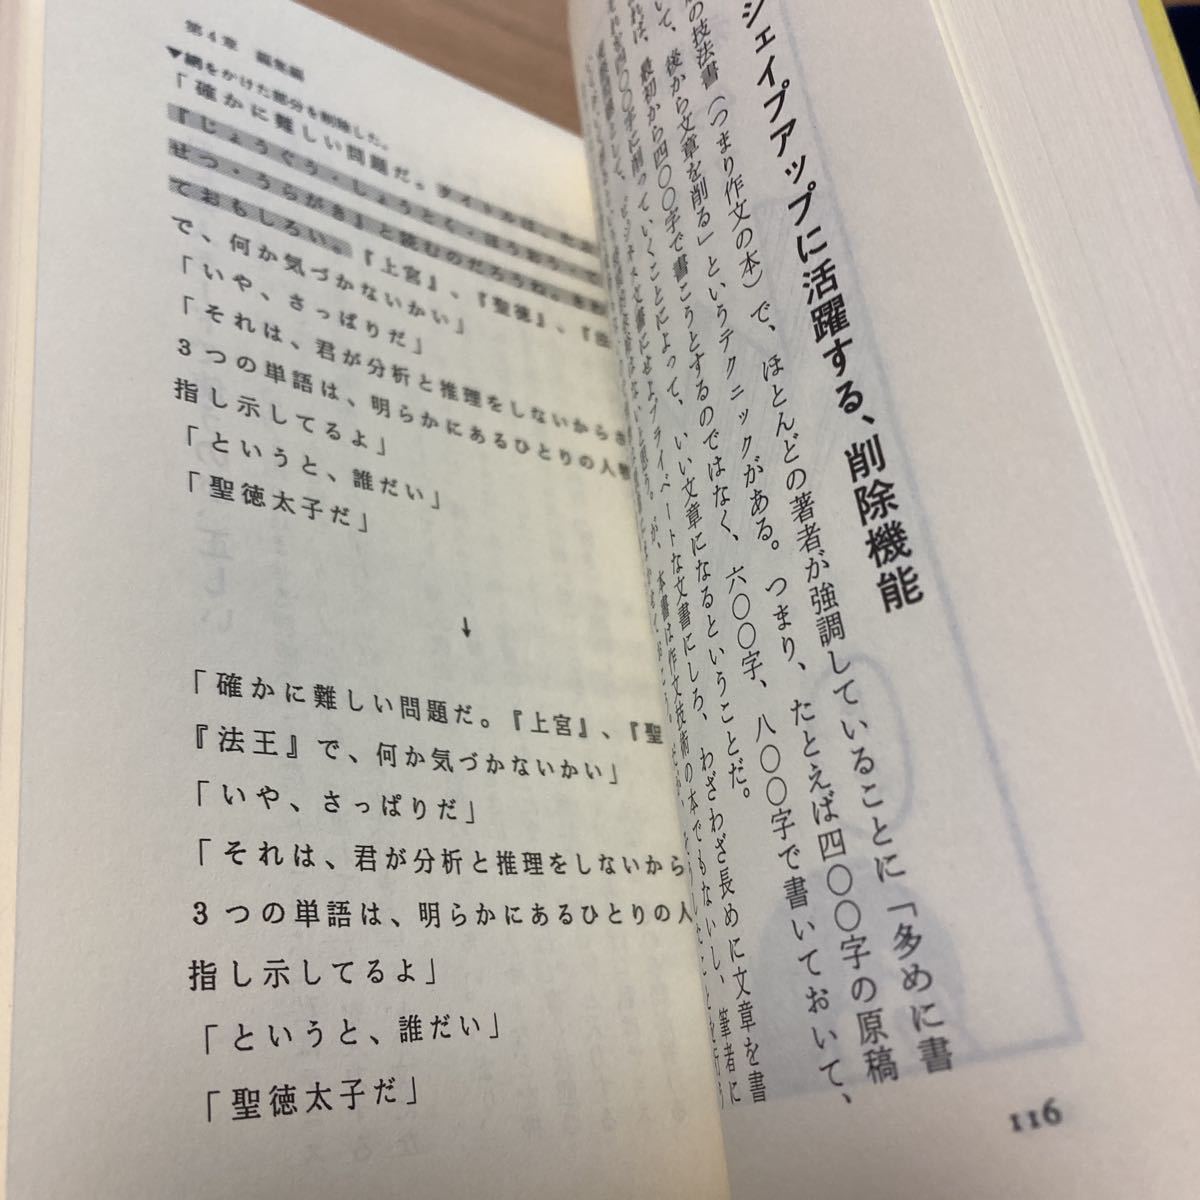 第4章 編集編
▼網をかけた部分を削除した。
「確かに難しい問題だ。タイトルは、
『じょうぐう・しょうとく・ほうおう・て
せつ・うらがき』と読むのだろうね。
ておもしろい。『上宮』、『聖徳』、『法
で、何か気づかないかい」
「いや、さっぱりだ」
「それは、君が分析と推理をしないからさ
3つの単語は、明らかにあるひとりの人物
指し示してるよ」
「というと、誰だい」
「聖徳太子だ」
↓
「確かに難しい問題だ。『上宮』、『聖
『法王』で、何か気づかないかい」
「いや、さっぱりだ」
「それは、君が分析と推理をしないから
3つの単語は、明らかにあるひとりの人
指し示してるよ」
「というと、誰だい」
「聖徳太子だ」
シェイプアップに活躍する、削除機能
の技法書(つまり作文の本)で、ほとんどの著者が強調していることに「多めに書
いて、後から文章を削る」というテクニックがある。つまり、たとえば四〇〇字の原稿
れば、最初から四〇〇字で書こうとするのではなく、六〇〇字、八〇〇字で書いておいて、
それを四〇〇字に削っていくことによって、いい文章になるということだ。
が、本書は作文技術の本でもないし、筆者に
プライベートな文書にしろ、わざわざ長めに文章を書
116